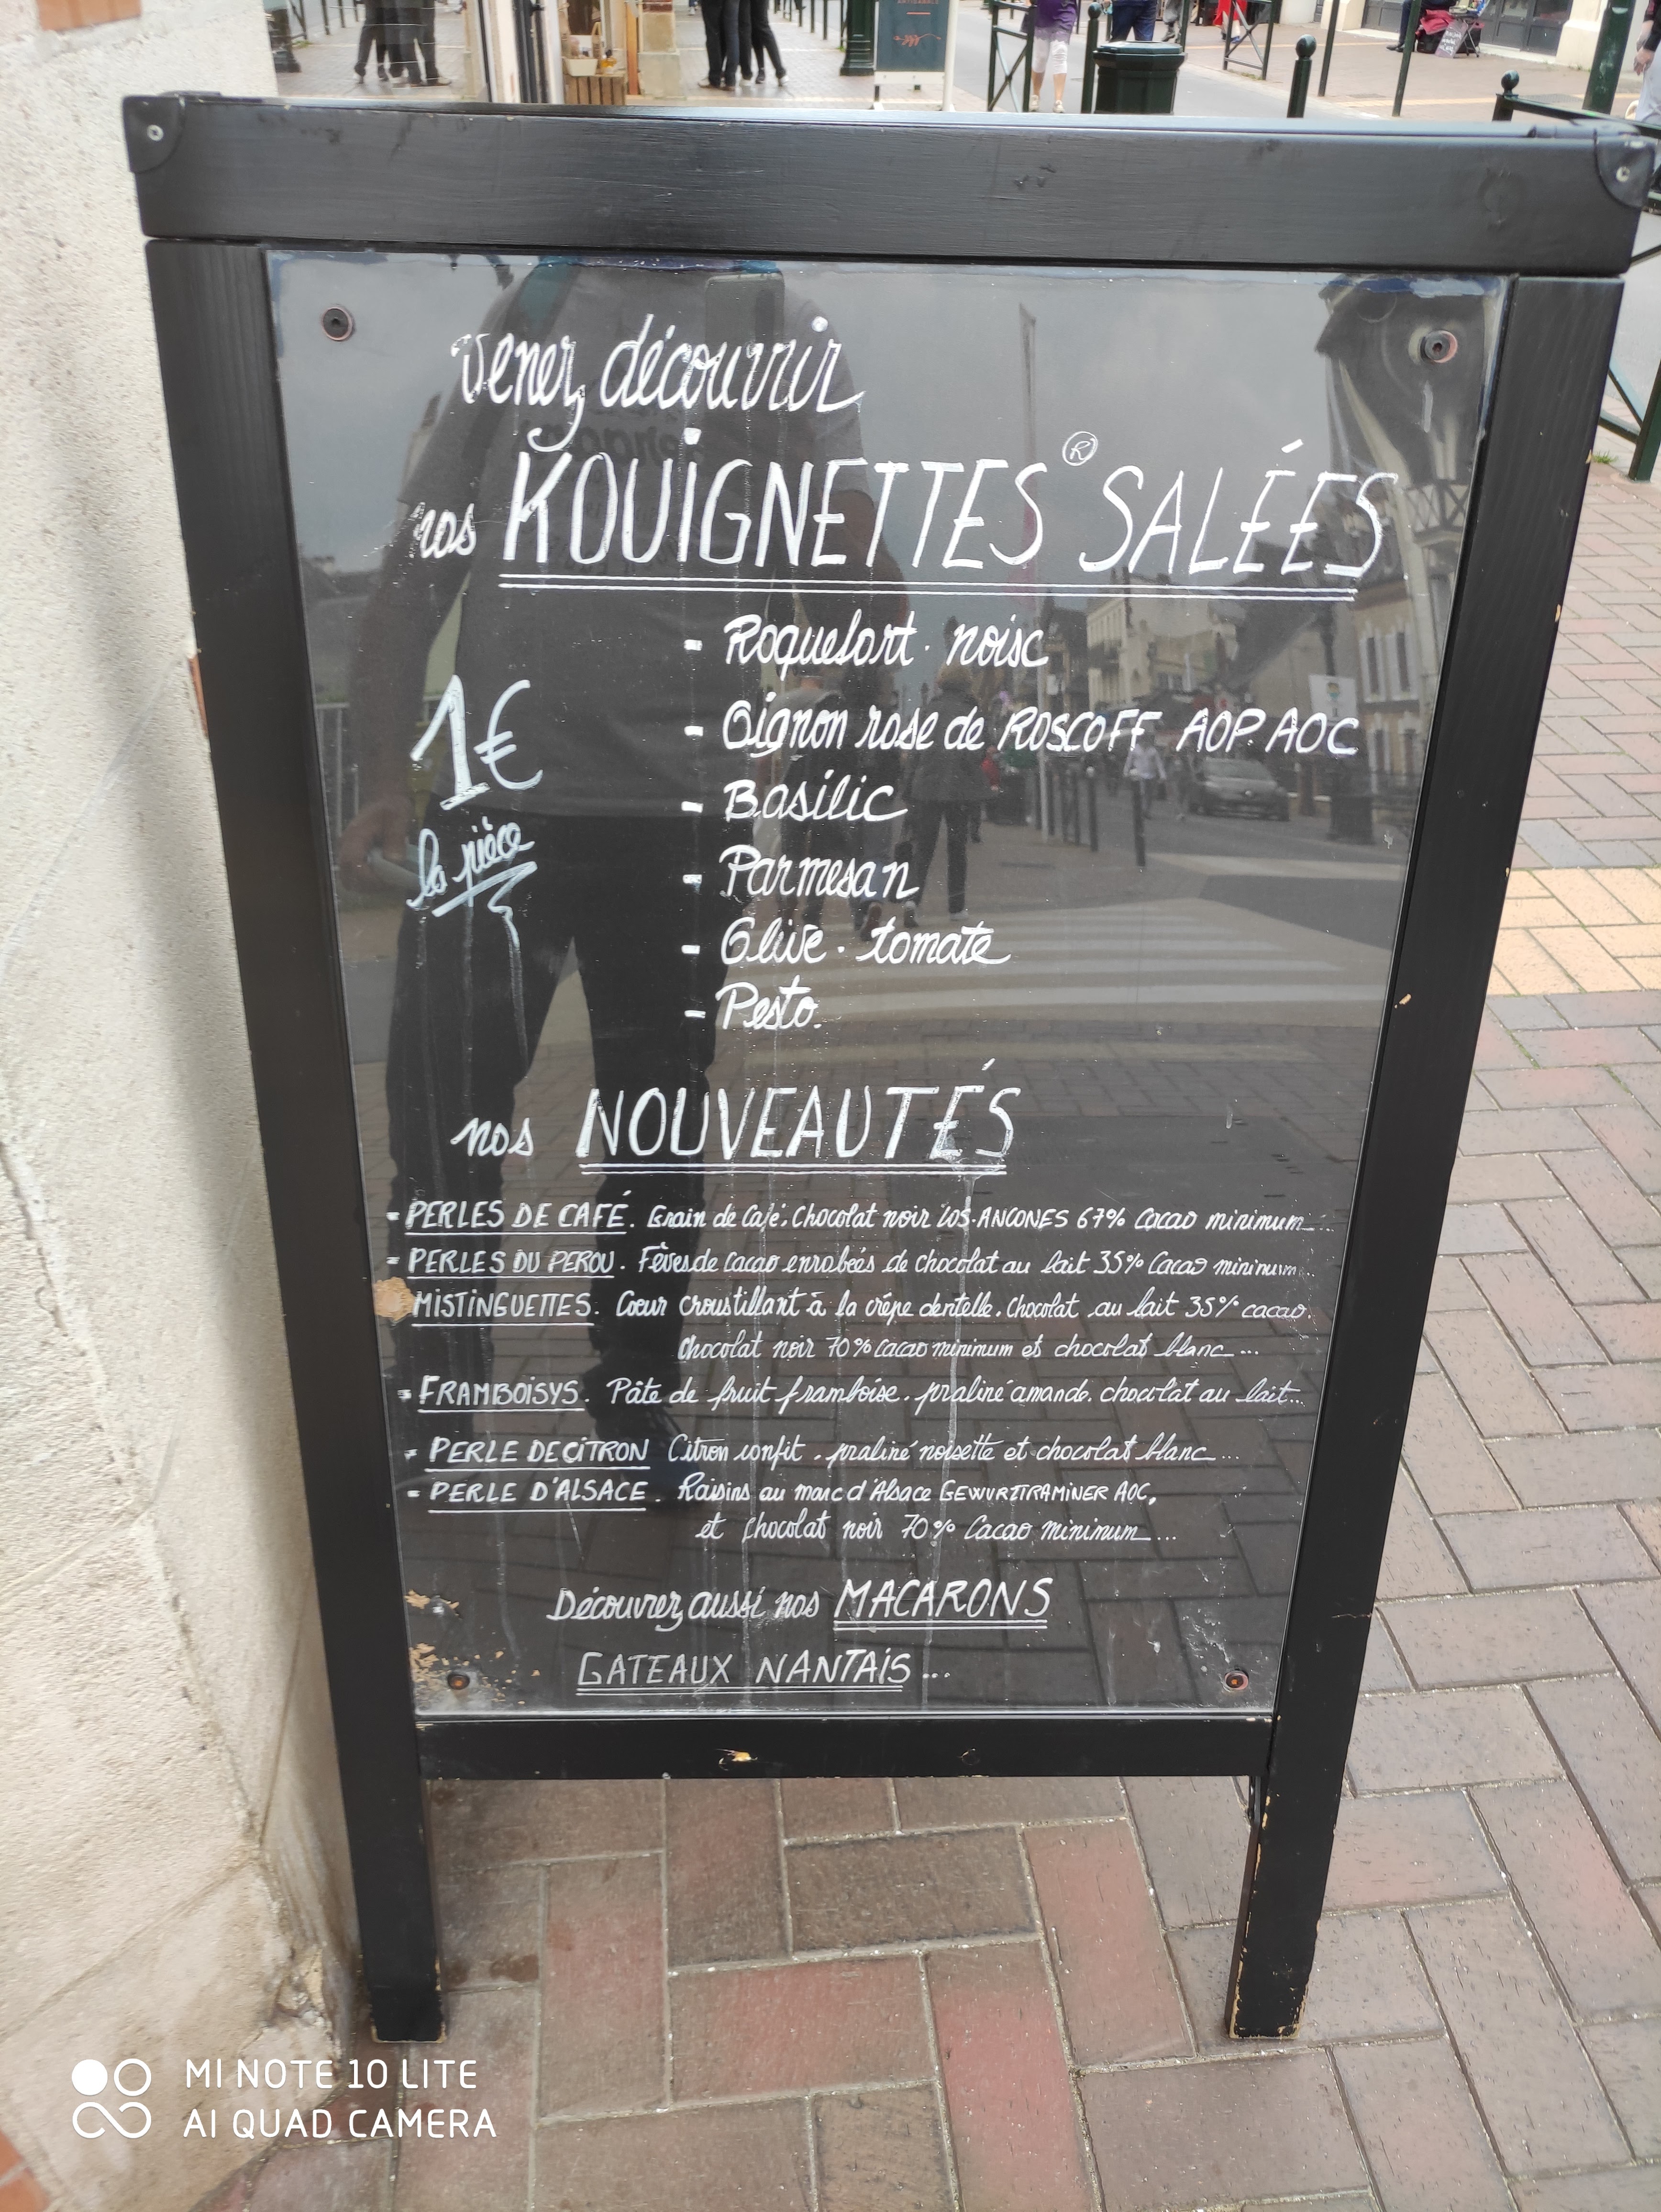 Venez découvrir
nos KOUIGNETTES® SALÉES
- Roquefort. noix
- Oignon rose de ROSCOFF AOP AOC
1€
la pièce
- Basilic
- Parmesan
- Olive. tomate
- Pesto.
nos NOUVEAUTÉS
- PERLES DE CAFÉ. Grain de Café. Chocolat noir LOS-ANCONES 67% Cacao minimum...
- PERLES DU PEROU. Fèves de cacao enrobées de chocolat au lait 35% Cacao minimum...
MISTINGUETTES. Coeur croustillant à la crêpe dentelle. Chocolat au lait 35% cacao.
Chocolat noir 70% cacao minimum et chocolat blanc...
- FRAMBOISYS. Pâte de fruit framboise. praliné amande. chocolat au lait...
- PERLE DE CITRON Citron confit. praliné noisette et chocolat blanc...
- PERLE D'ALSACE. Raisins au marc d'Alsace GEWURZTRAMINER AOC,
et chocolat noir 70% Cacao minimum...
Découvrez aussi nos MACARONS
GATEAUX NANTAIS...
MI NOTE 10 LITE
AI QUAD CAMERA